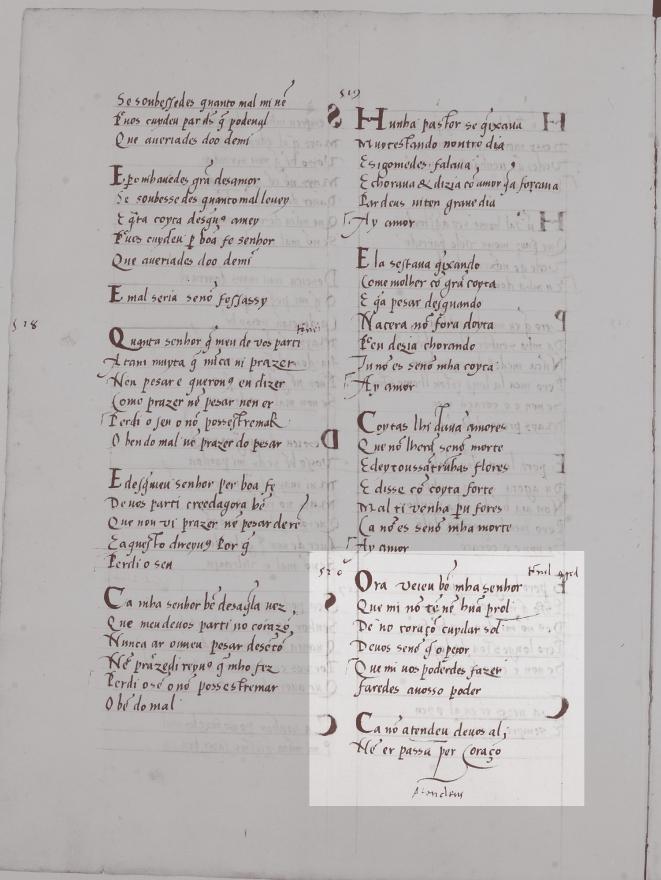 Se soubessedes quanto mal mi vẽ
E uos cuydeu par ds q̃ podeuyl
Que aueriades doo demi
E pombauedes grã desamor
Se soubessedes quanto mal leuey
E q̃ta coyca desqũ amey
E uos cuydeu p boa fe senhor
Que aueriades doo demi
E mal seria senõ fossassy
518
Quanta senhor q̃ meu de uos parti
Atam muyta q̃ nũca ni prazer
Nen pesar e en dizer
Como prazer nẽ pesar nen er
Perdi o sen o nõ posestremar
O ben do mal nẽ prazer do pesar
E desqueu senhor per boa fe
De uos parti creedagora bẽ
Que non vi prazer nẽ pesar de
E aquesto direyuꝯ por q̃
Perdi o sen
Ca mha senhor bẽ desaqla vez
Que meu deuos parti no coraçõ
Nunca ar ouueu pesar desẽtõ
Nẽ prazer direyuꝯ q̃ mho fez
Perdi o sẽ o nõ posestremar
O bẽ do mal
519
Hunha pastor se q̃ixaua
Muyt estando noutro dia
E sigo medes falaua
E choraua & dizia cõ amor q̃a forçaua
Par deus vi ten graue dia
Ay amor
Ela sestaua q̃ixando
Come molher cõ grã coyta
E q̃a pesar desquando
Nacera nõ fora doyta
E en dezia chorando
Tu nõ es senõ mha coyta
Ay amor
Coytas lhi dauã amores
Que nõ lherã senõ morte
E deytoussantrũhas flores
E disse cõ coyta forte
Mal ti venha pu fores
Ca nõ es senõ mha morte
Ay amor
520
Ora veieu bẽ mha senhor
Que mi nõ tẽ nẽhũa prol
De no coraçõ cuydar sol
Deuos senõ q̃ o peor
Que mi uos poderdes fazer
Faredes auosso poder
Ca nõ atendeu deuos al
Nẽ er passa per coraçõ